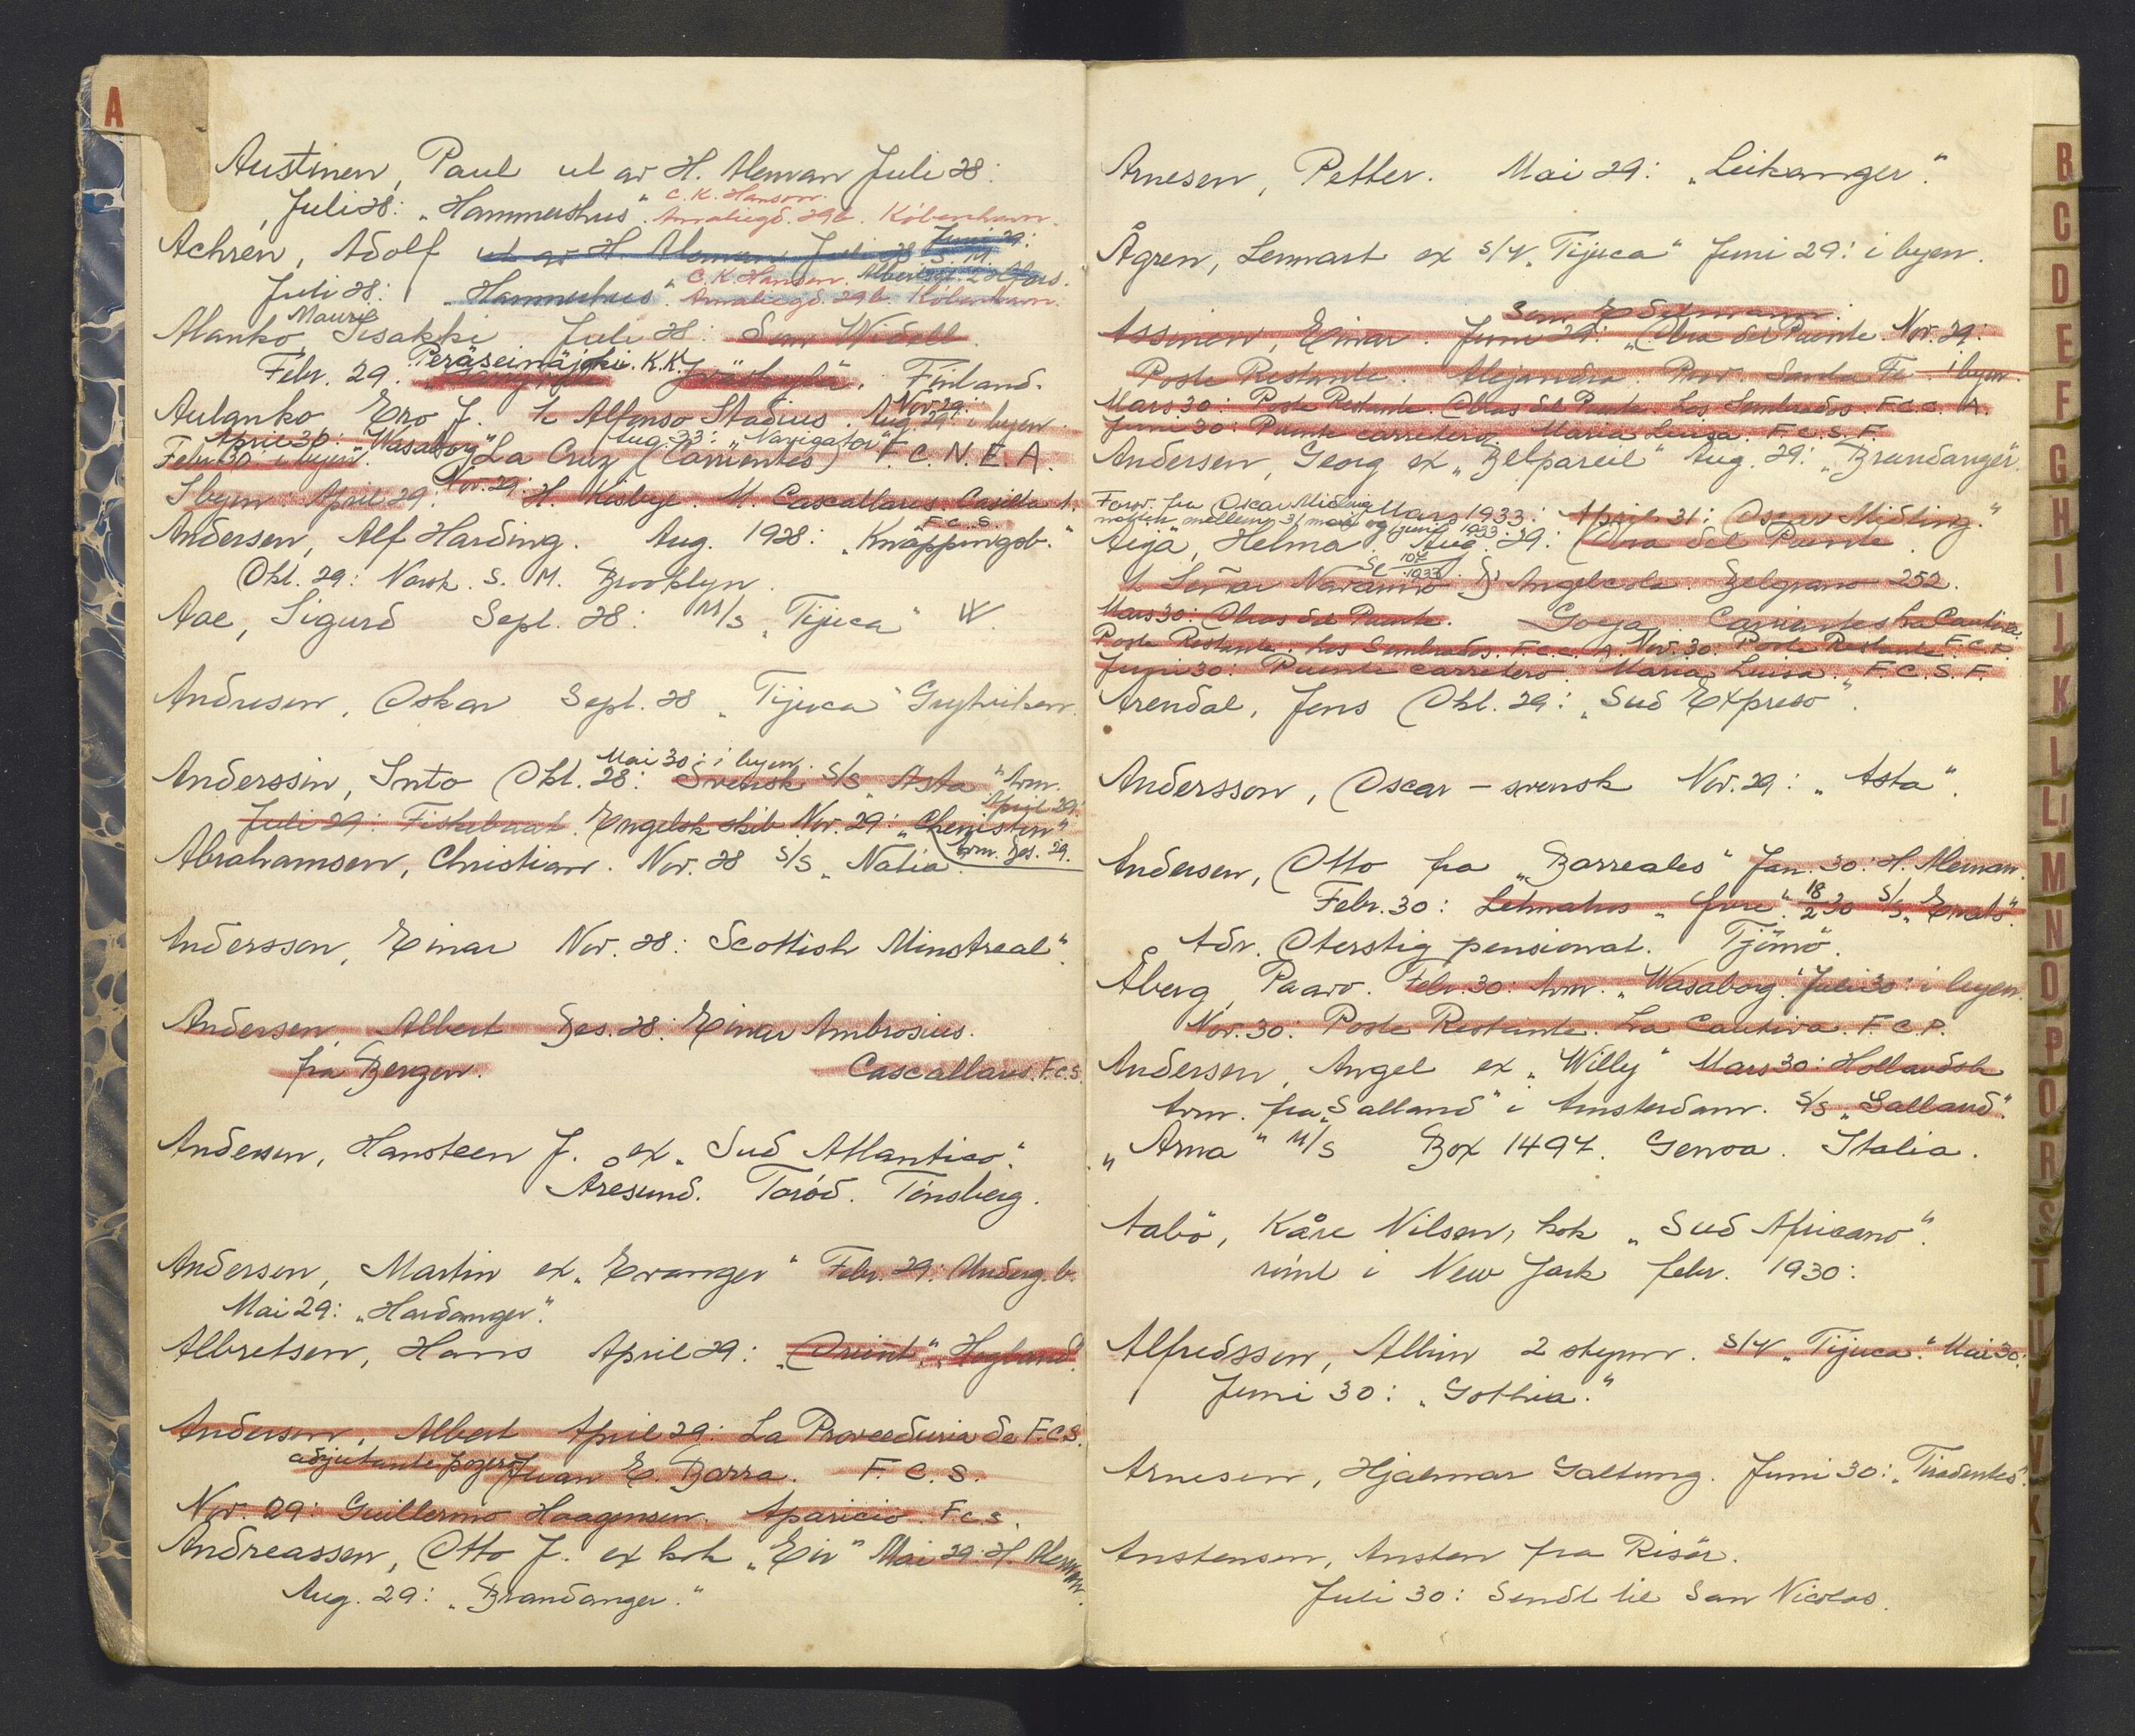 A
Austinen, Paul ut av H. Aleman Juli 28:
Juli 28: „Hammershus“. C. K. Hansen.
Amaliegd. 29b. Köbenhavn.
Achrén, Adolf ut av H. Aleman Juli 28 Juni 29:
S. M.
Albertsgt. 2 H:fors.
Juli 28: „Hammershus“. C. K. Hansen.
Amaliegd. 29b. Köbenhavn.
Mauri
Alanko, Iisakki Juli 28: Sem Widell.
Febr. 29. Peräseinäjoki. K.K. Jyväskylä. Finland.
Aulanko Ero J. % Alfonso Stadius. Aug. 29: i byen.
Nov. 29:
April 30: „Wasaborg“ Aug. 33: „Navigator“
Febr. 30 i byen. La Cruz (Corrientes) F. C. N. E. A.
I byen: April 29: Nov. 29: H. Kisbye. M. Cascallares. Casilla 1.
F.C.S.
Andersen, Alf Harding. Aug. 1928: „Knäppingsb.“
Okt. 29: Norsk. S. M. Brooklyn.
Aae, Sigurd Sept. 28: M/S „Tijuca“ W.
Andresen, Oskar Sept. 28 „Tijuca“ Grytviken.
Mai 30: i byen.
Anderssin, Into Okt. 28: Svensk S/S „Asta“ Arm.
April 29:
Juli 29: Fiskebaat. Engelsk skib Nov. 29: „Chemistin“
Arm. Des. 29.
Abrahamsen, Christian. Nov. 28 S/S „Natia“.
Andersson, Einar Nov. 28: Scottish Minstreal“.
Andersen, Albert Des. 28: Einar Ambrosius.
fra Bergen. Cascallares. F.C.S.
Andersen, Hansteen J. ex „Sud Atlantico“.
Åresund. Toröd. Tönsberg.
Andersen, Martin ex „Evanger“ Febr. 29: Underg. b.
Mai 29: „Hardanger“.
Albretsen, Hans April 29: „Orient“, „Hogland“.
Andersen, Albert April 29: La Proveeduria de F.C.S.
adjutante pozero Juan E. Barra. F. C. S.
Nov. 29: Guillermo Haagensen. Aparicio. F.C.S.
Andreassen, Otto J. ex kok „Eir“ Mai 29: H. Aleman.
Aug. 29: „Brandanger.“
Arnesen, Petter. Mai 29: „Leikanger“.
Ågren, Lennart ex S/V „Tijuca“ Juni 29: i byen.
Sem Edelmann.
Assinen, Einar. Juni 29: „Obra del Puente. Nov. 29:
Poste Restante. Alejandra. Prov. Santa Fe. i byen.
Mars 30: Poste Restante. Obras del Puente. Los Sembrados. F.C.C.A.
Juni 30: Puente carretero. Maria Luisa. F.C.S.F.
Andersen, Georg ex „Belpareil“ Aug. 29: „Brandanger“.
Forsv. fra Oscar Midling Mars 1933: April 31: Oscar Midling.“
mellem 31 mars og 1 juni 1933.
Aija, Helma. Aug. 29: Obra del Puente.
% Señor Navarino Angelcola. Belgrano 252.
Mars 30: Obras del Puente. Goya Corrientes La Cautiva.
Poste Restante. Los Sembrados. F.C.C.A. Nov. 30: Poste Restante. F.C.P.
Juni 30: Puente carretero. Maria Luisa. F.C.S.F.
Arendal, Jens Okt. 29: „Sud Expreso“.
Andersson, Oscar – svensk Nov. 29: „Asta“.
Andersen, Otto fra „Barreales“ Jan. 30: H. Aleman.
Febr. 30: Lehmahrs „fore“. 18/2 30 S/S „Erato“.
Adr. Oterstig pensionat. Tjömö.
Åberg, Paavo. Febr. 30: Arm. „Wasaborg.“ Juli 30: i byen.
Nov. 30: Poste Restante. La Cautiva. F.C.P.
Andersen, Angel ex „Willy“ Mars 30: Hollandsk
Arm. fra „Salland“ i Amsterdam. S/S „Salland“.
„Arna“ M/S Box 1497. Genoa. Italia.
Aabö, Kåre Nilsen, kok „Sud Africano“.
römt i New York febr. 1930:
Alfredsson, Albin 2 styrm. S/V „Tijuca.“ Mai 30:
Juni 30: „Gothia.“
Arnesen, Hjalmar Galtung. Juni 30: „Tiradentes“.
Anstensen, Ansten fra Risör.
Juli 30: Sendt til San Nicolas.
B
C
D
E
F
G
H
I
J
K
L
Ll
M
N
O
P
Q
R
S
T
U
V